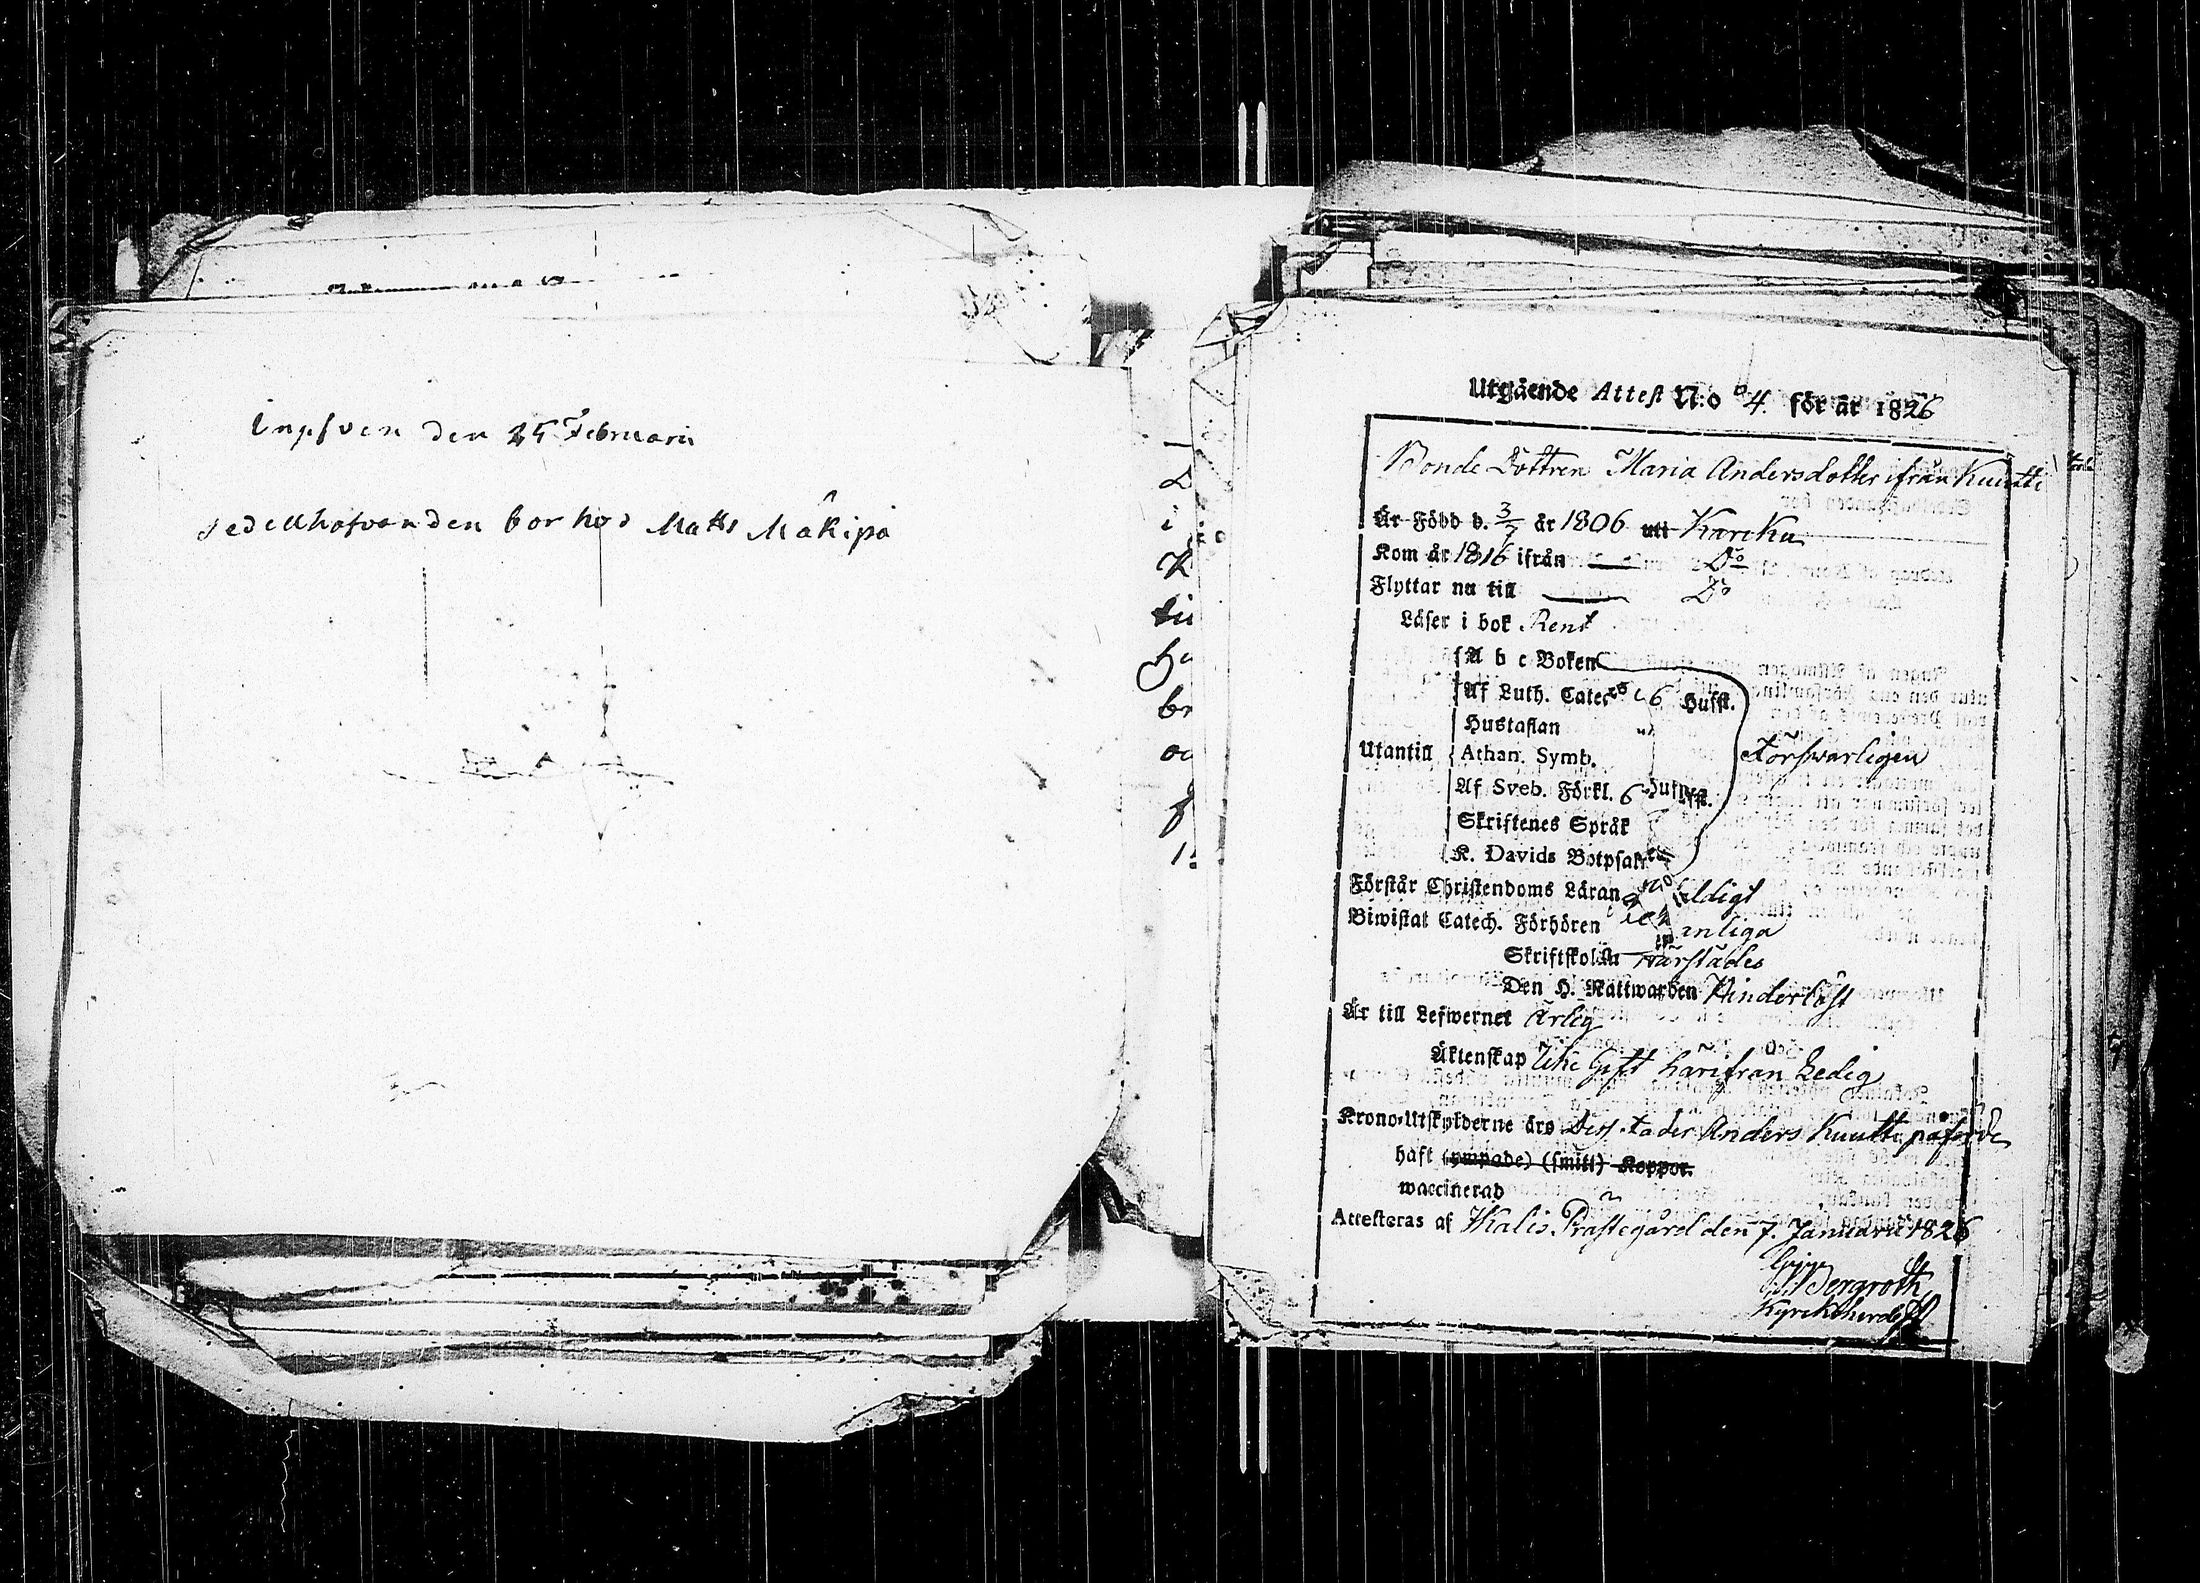 Inssven den 25 Februarii
sedelhafvanden bor hos Matts Mäkipä
Utgående Attest N:o 4. för år 1826
Bonde Dottren Maria Andersdotter ifrån Kuutti
Är Född d. 3/7 år 1806 uti Kareku
Kom år 1816 ifrån Do
Flyttar nu till Do
Läser i bok Rent
A b c Boken
Af Luth. Catec 6 Hufst.
Hustaflan
Utantill Athan. Symb. Försvarligen
Af Sveb. Förkl. 6 Hufst.
Skriftenes Språk
K. Davids Botpsalm
Förstår Christendoms Läran
Biwistat Catech. Förhören
Skriftskolan wårstädes
Den H. Nattwarden Hinderlöst
Är till Lefwernet Ärlig
Äktenskap Icke Gift härifrån Ledig
Krono-Utskylderne äro Dess fader Anders Kuutti påförde
haft (ympade) (smitt) Koppor.
waccinerad
Attesteras af Ikalis Prästegård den 7. Januarii 1826
Bergroth
Kyrckoherde